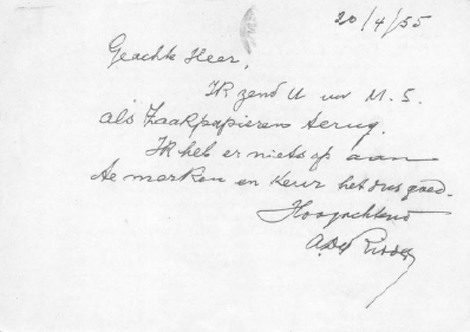 20/4/55
Geachte Heer,
Ik zend U uw M.S.
als zaakpapieren terug.
Ik heb er niets op aan
te merken en keur het dus goed.
Hoogachtend